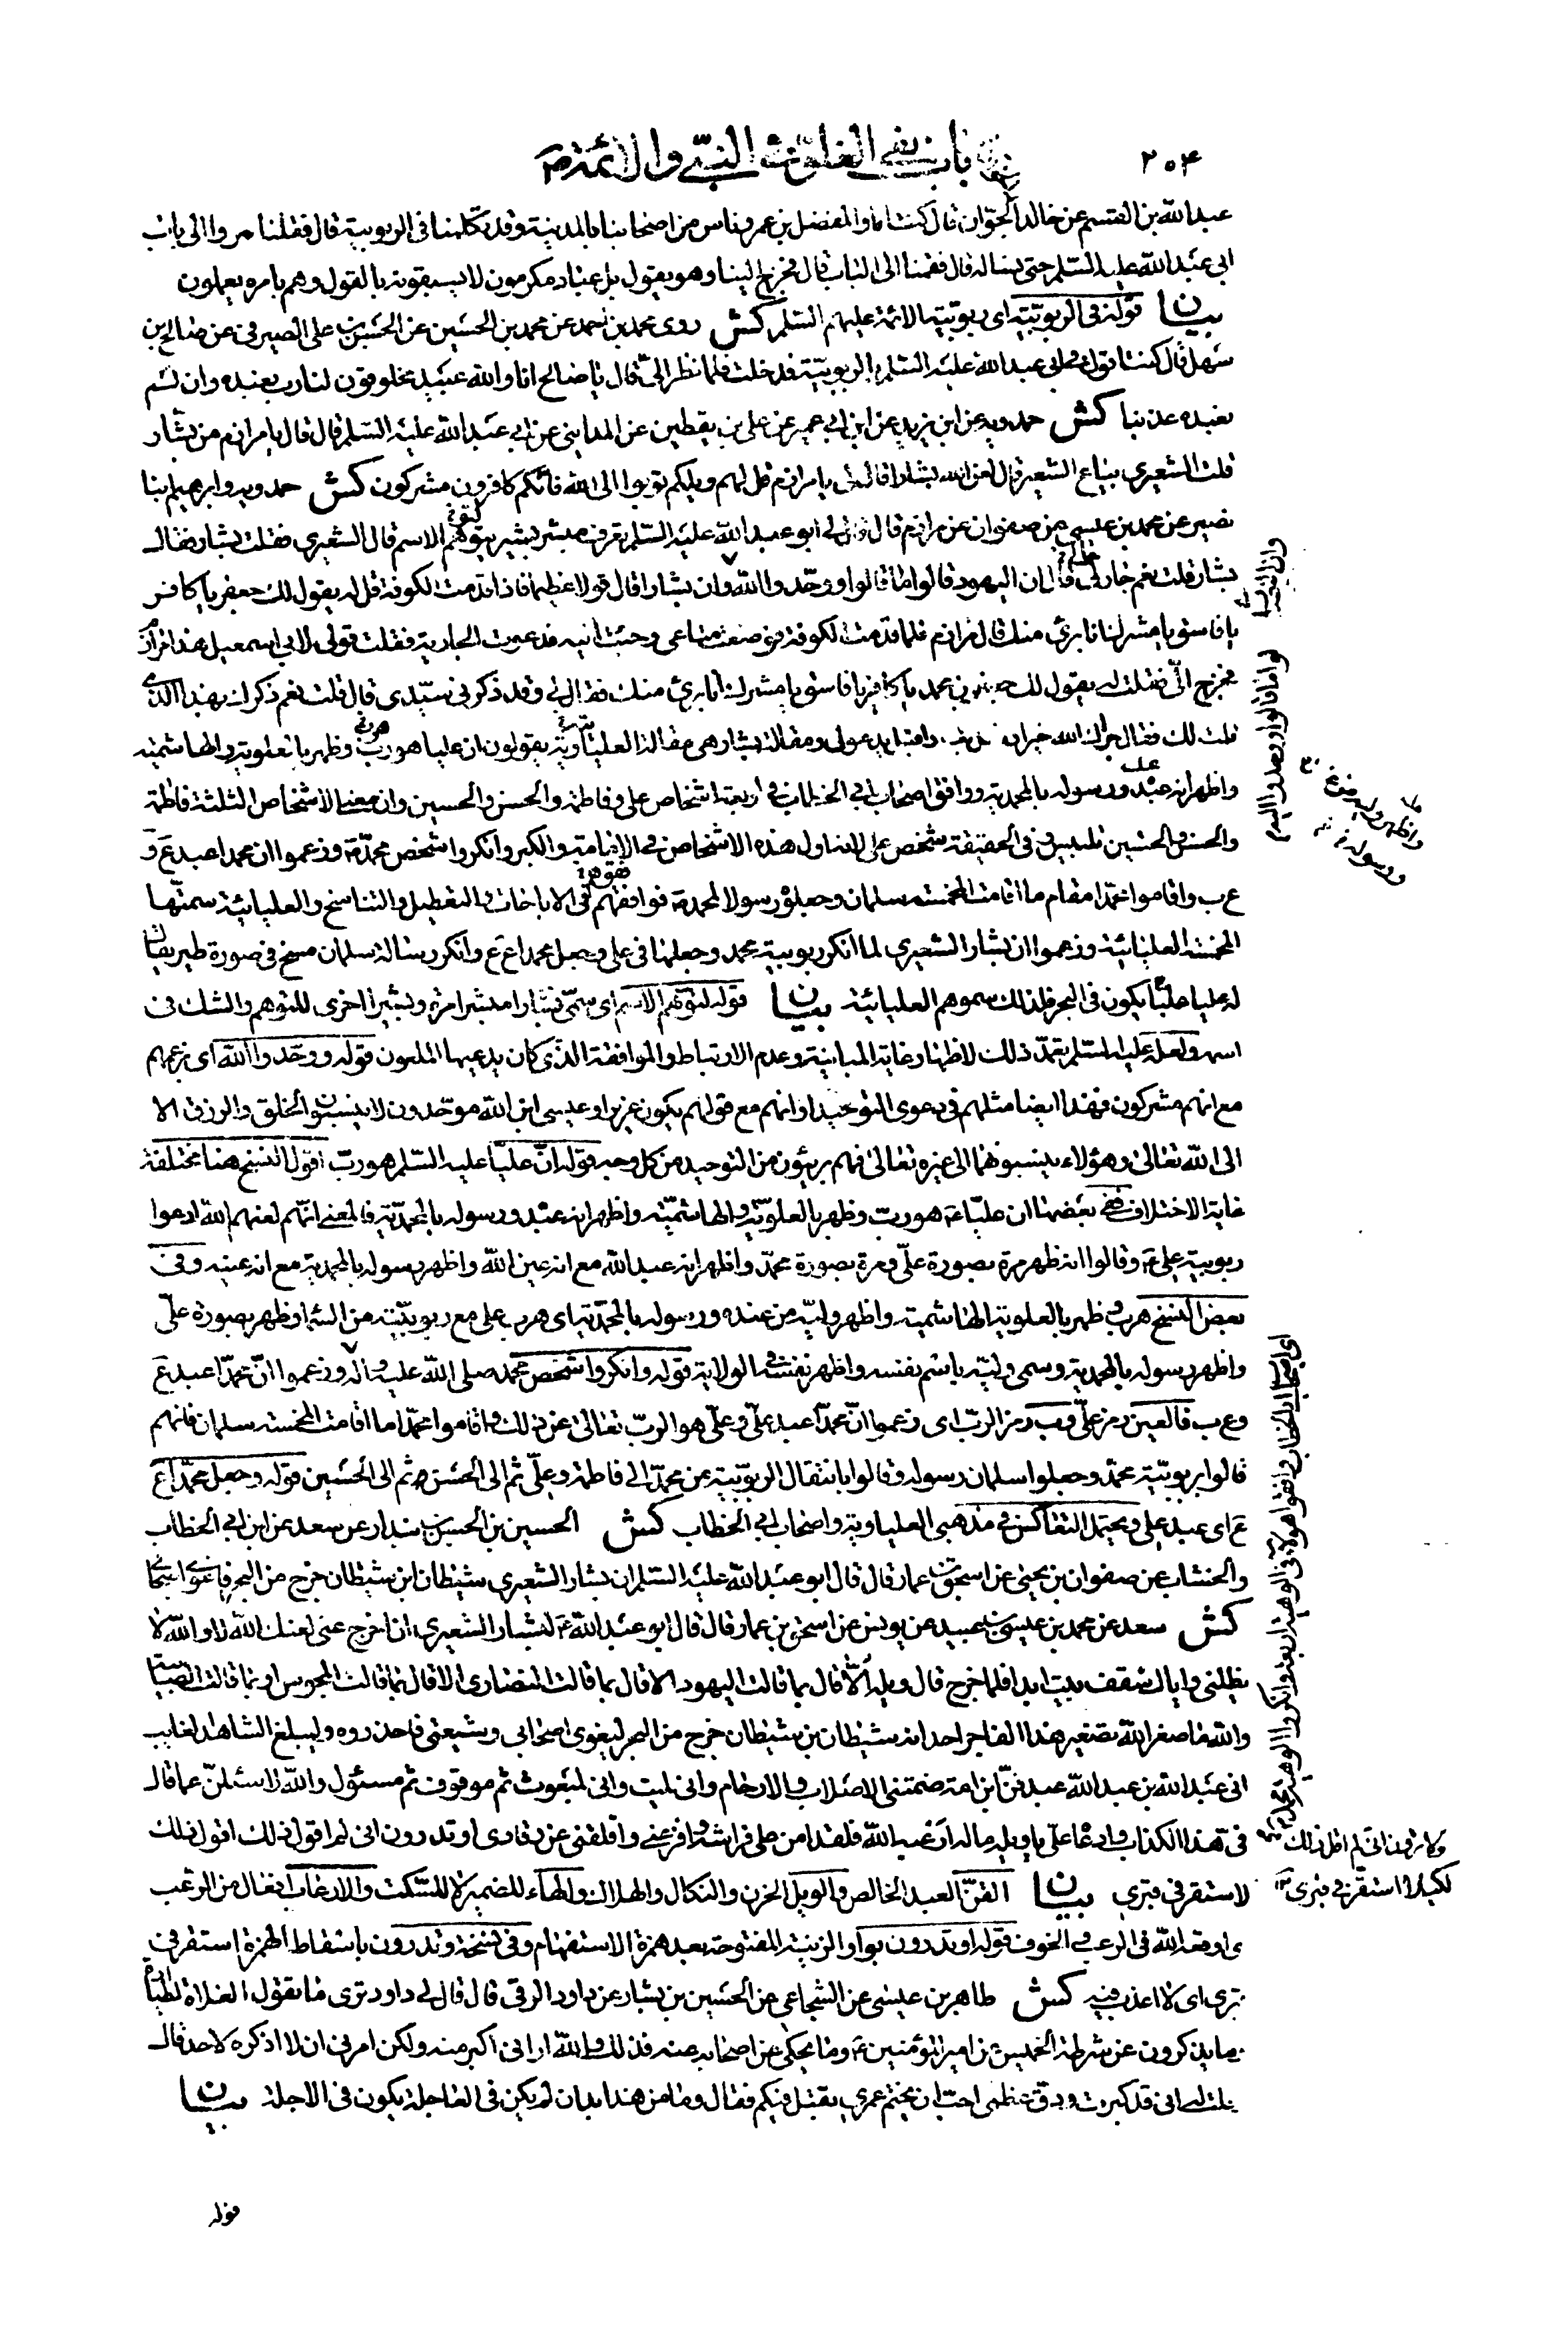 ٢٥٤
باب نفي الغلو في النبي والائمة ص
عبدالله بن القسم عن خالد الجوان قال كنت انا والمفضل بن عمر وناس من اصحابنا بالمدينة وقد تكلمنا في الربوبية قال فقلنا مروا الى باب
ابي عبدالله عليه السلم حتى نساله قال فقمنا الى الباب قال فخرج الينا وهو يقول بل عباد مكرمون لا يسبقونه بالقول وهم بامره يعملون
بيان قوله في الربوبية اي ربوبية الائمة عليهم السلم كش روى محمد بن احمد عن محمد بن الحسين عن الحسن بن على الصيرفي عن صالح بن
سهل قال كنت اقول في ابي عبدالله عليه السلم بالربوبية فدخلت فلما نظر الي قال يا صالح انا والله عبيد مخلوقون لنا رب نعبده وان لم
نعبده عذبنا كش حمدويه عن ابن يزيد عن ابن ابي عمير عن على بن يقطين عن المدايني عن ابي عبدالله عليه السلم قال قال يا مرازم من بشار
قلت الشعيري بياع الشعير قال لعن الله بشارا قال ثم يا مرازم قل لهم ويلكم توبوا الى الله فانكم كافرون مشركون كش حمدويه وابرهيم ابنا
نصير عن محمد بن عيسى عن صفوان عن مرازم قال قال لي ابو عبدالله عليه السلم تعرف مبشر بشير بتوهم الاسم قال الشعيري فقلت بشار فقال
بشار قلت نعم جار لي قال ان اليهود قالوا ما قالوا ووحدوا الله وان بشارا قال قولا عظيما فاذا قدمت الكوفة قل له يقول لك جعفر يا كافر
يا فاسق يا مشرك انا بري منك قال مرازم فلما قدمت الكوفة فوضعت متاعي وجئت اليه فدعوت الجارية فقلت قولي لابي اسمعيل هذا مرازم
فخرج الي فقلت له يقول لك جعفر بن محمد يا كافر يا فاسق يا مشرك انا بري منك فقال لي وقد ذكرني سيدي قال قلت نعم ذكرك بهذا الذي
قلت لك فقال جزاك الله خيرا وفعل بك واقبل يدعو لي ومقالة بشار هي مقالة العلياوية يقولون ان عليا هو رب وظهر بالعلوية والهاشمية
واظهر انه عبده ورسوله بالمحمدية ووافق اصحاب ابي الخطاب في اربعة اشخاص علي وفاطمة والحسن والحسين وان معنى الاشخاص الثلثة فاطمة
والحسن والحسين تلبيس وفي الحقيقة شخص علي لانه اول هذه الاشخاص في الامامة والكبر وانكروا شخص محمد ص وزعموا ان محمدا عبد ع و
ع ب واقاموا محمدا مقام ما اقامت المخمسة سلمان وجعلوه رسولا لمحمد ص فوافقهم في الاباحات والتعطيل والتناسخ والعليائية سمتها
المخمسة العليائية وزعموا ان بشار الشعيري لما انكر ربوبية محمد وجعلها في علي وجعل محمدا ع ع وانكر رسالة سلمان مسخ في صورة طير يقال
له عليا يكون في البحر فلذلك سموهم العليائية بيان قوله بتوهم الاسم اي سمى بشارا مبشرا مرة وبشيرا اخرى للتوهم والشك في
اسمه ولعله عليه السلم تعمد ذلك لاظهار غاية المباينة وعدم الارتباط والموافقة الذي كان يدعيها الملعون قوله ووحدوا الله اي بزعمهم
مع انهم مشركون فهذا ايضا مثلهم في دعوى التوحيد او انهم مع قولهم بكون عزير او عيسى ابن الله موحدون لا ينسبون الخلق والرزق الا
الى الله تعالى وهؤلاء ينسبونهما الى غيره تعالى فهم بريئون من التوحيد من كل وجه قوله ان عليا عليه السلم هو رب اقول النسخ هنا مختلفة
غاية الاختلاف ففي بعضها ان عليا ع هو رب وظهر بالعلوية والهاشمية واظهر انه عبده ورسوله بالمحمدية فالمعنى انهم لعنهم الله ادعوا
ربوبية علي ع وقالوا انه ظهر مرة بصورة علي ومرة بصورة محمد واظهر انه عبدالله مع انه عين الله واظهر رسوله بالمحمدية مع انه عينه وفي
بعض النسخ هرب وظهر بالعلوية الهاشمية واظهر وليه من عنده ورسوله بالمحمدية اي هرب علي مع ربوبيته من السماء وظهر بصورة علي
واظهر رسوله بالمحمدية وسمى وليه باسم نفسه واظهر نفسه في الولاية قوله وانكروا شخص محمد صلى الله عليه واله وزعموا ان محمدا عبد ع
وع ب فالعين رمز علي وب رمز الرب اي زعموا ان محمدا عبد علي وعلي هو الرب تعالى عن ذلك واقاموا محمدا ما اقامت المخمسة سلمان فانهم
قالوا بربوبية محمد وجعلوا سلمان رسوله وقالوا بانتقال الربوبية من محمد الى فاطمة وعلي ثم الى الحسن ثم الى الحسين قوله وجعل محمدا ع
ع اي عبد علي ويحتمل التعاكس في مذهبي العلياوية واصحاب ابي الخطاب كش الحسين بن الحسن بن بندار عن سعد عن ابن ابي الخطاب
والخشاب عن صفوان بن يحيى عن اسحق بن عمار قال قال ابو عبدالله عليه السلم ان بشار الشعيري شيطان ابن شيطان خرج من البحر فاغوى اصحابي
كش سعد عن محمد بن عيسى بن عبيد عن يونس عن اسحق بن عمار قال قال ابو عبدالله ع لبشار الشعيري اخرج عني لعنك الله لا والله لا
يظلني واياك سقف بيت ابدا فلما خرج قال ويله الا قال بما قالت اليهود الا قال بما قالت النصارى الا قال بما قالت المجوس او بما قالت الصابئة
والله ما صغر الله تصغير هذا الفاجر احد انه شيطان بن شيطان خرج من البحر ليغوي اصحابي وشيعتي فاحذروه وليبلغ الشاهد الغايب
اني عبدالله بن عبدالله عبد قن ابن امة ضمتني الاصلاب والارحام واني لميت واني لمبعوث ثم موقوف ثم مسئول والله لاسئلن عما قال
في هذا الكذاب وادعاه علي يا ويله ما له ارعبه الله فلقد امن على فراشه وافزعني واقلقني عن رقادي اوتدرون اني لم اقول ذلك اقول ذلك
لاستقر في قبري بيان القن العبد الخالص والويل الحزن والنكال والهلاك والهاء للضمير لا للسكت والارعاب افعال من الرعب
اي اوقعه الله في الرعب والخوف قوله اوتدرون بواو الزينة المفتوحة بعد همزة الاستفهام وفي نسخة وتدرون باسقاط الهمزة استقر في
قبري اي لا اعذب فيه كش طاهر بن عيسى عن الشجاعي عن الحسين بن بشار عن داود الرقي قال قال لي داود ترى ما تقول الغلاة الطيارة
وما يذكرون عن شرطة الخميس عن امير المؤمنين ع وما يحكي عن اصحابه عنه فذلك والله اراني اكبر منه ولكن امرني ان لا اذكره لاحد قال
قلت له اني قد كبرت ودق عظمي احب ان يختم عمري بقتل فيكم فقال وما من هذا بد ان لم يكن في العاجلة يكون في الاجلة بيان
قوله
وان النصارى
قالوا ما قالوا ووحدوا الله
واظهر وليه من ع
ورسوله
اي اصحاب ابي الخطاب وافقوا هؤلاء في الوهية اربعة وانكروا الوهية محمد
وكانه قوله اني لم اقل ذلك
لكيلا استقر في قبري